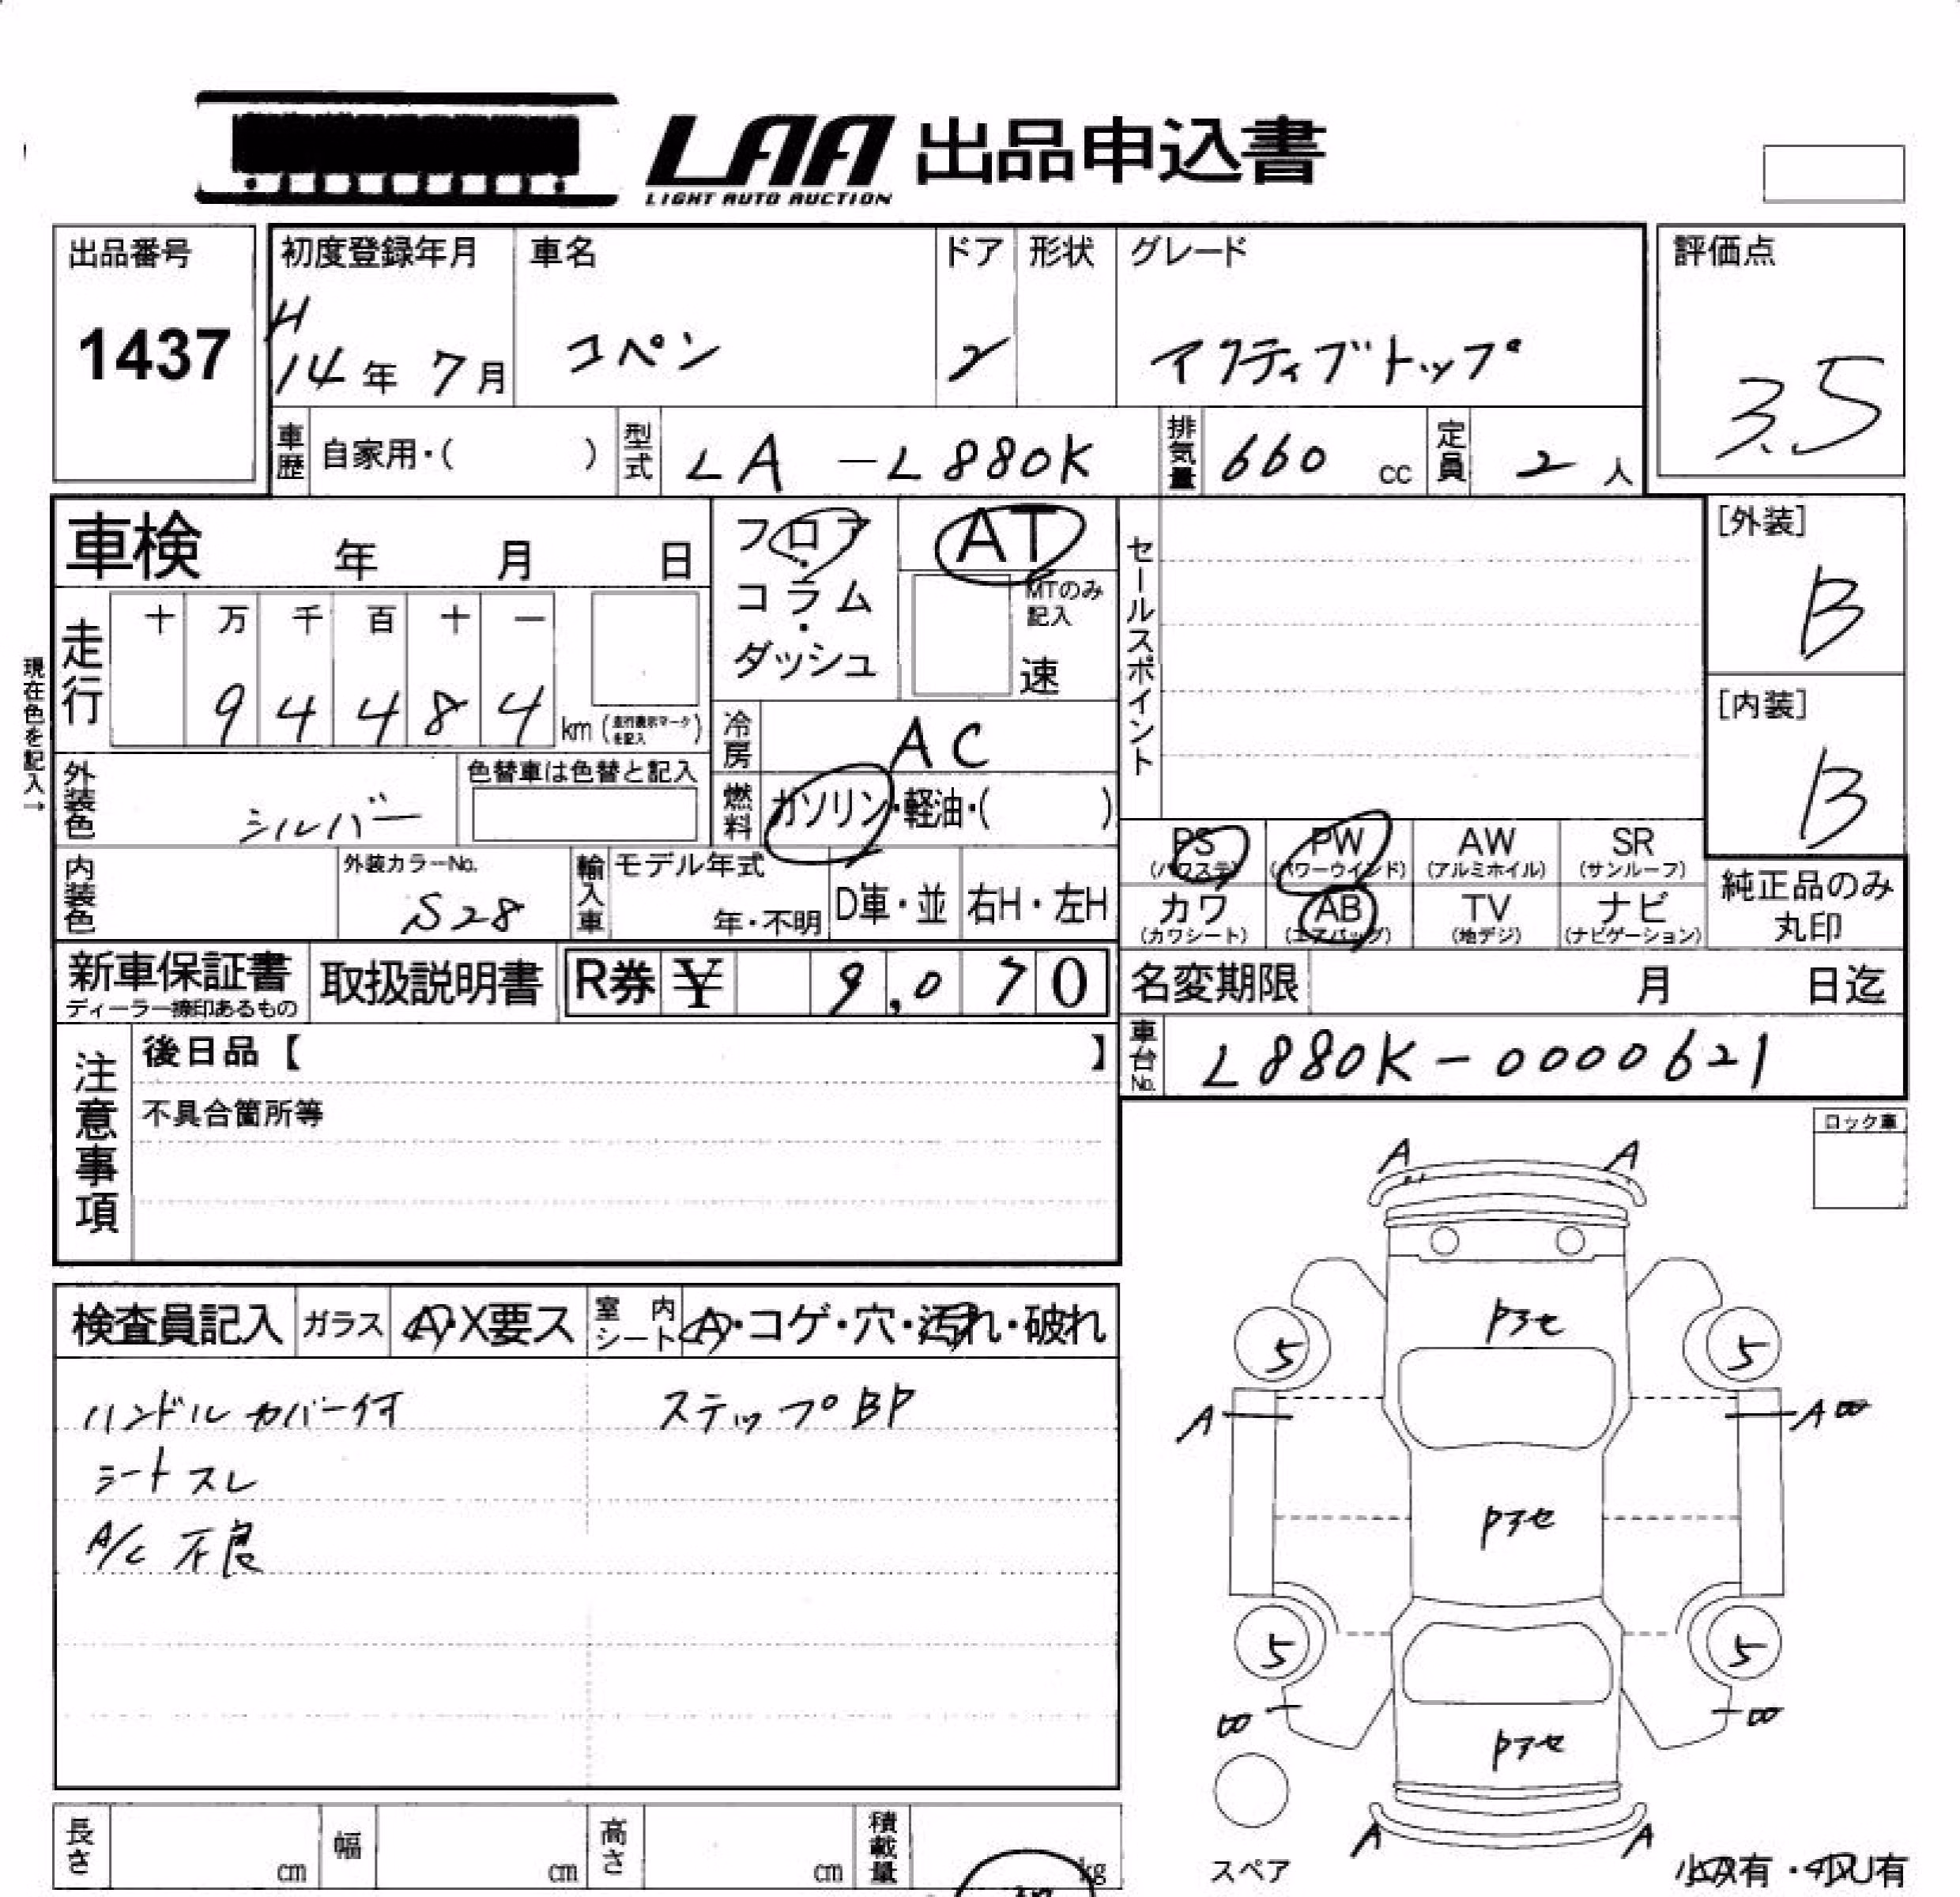 LAA 出品申込書
LIGHT AUTO AUCTION
出品番号
1437
初度登録年月
H
14年 7月
車名
コペン
ドア
2
形状
グレード
アクティブトップ
評価点
3.5
車歴
自家用・( )
型式
LA -L880K
排気量
660 cc
定員
2 人
車検 年 月 日
フロア・コラム・ダッシュ
AT
MTのみ記入
速
セールスポイント
[外装]
B
[内装]
B
現在色を記入→
走行
十 万 千 百 十 一
9 4 4 8 4
km (走行表示マークを記入)
冷房
AC
燃料
ガソリン・軽油・( )
外装色
シルバー
色替車は色替と記入
内装色
外装カラーNo.
S28
輸入車
モデル年式
年・不明
D車・並
右H・左H
PS
(パワステ)
PW
(パワーウインド)
AW
(アルミホイル)
SR
(サンルーフ)
カワ
(カワシート)
AB
(エアバッグ)
TV
(地デジ)
ナビ
(ナビゲーション)
純正品のみ
丸印
新車保証書
ディーラー捺印あるもの
取扱説明書
R券 ¥ 9,070
名変期限 月 日迄
車台No.
L880K-0000621
注意事項
後日品【 】
不具合箇所等
ロック車
検査員記入
ガラス
A・X要ス
室内シート
A・コゲ・穴・汚れ・破れ
ハンドルカバー付
ステップBP
シートスレ
A/C 不良
A A
Pアセ
5 5
A A
Pアセ
5 5
Pアセ
A A
スペア
長さ cm
幅 cm
高さ cm
積載量 kg